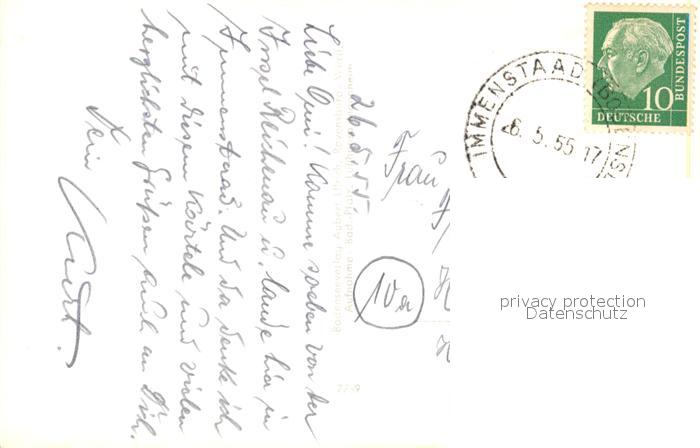 26.5.55.
Liebe Omi! Komme soeben von der
Insel Reichenau u. lande hier in
Immenstaad. Und da denke ich
mit diesem Kärtele und vielen
herzlichsten Grüßen auch an Dich.
Dein
Kurt.
Frau
10a
IMMENSTAAD
26.5.55.17
10
DEUTSCHE
BUNDESPOST
privacy protection
Datenschutz